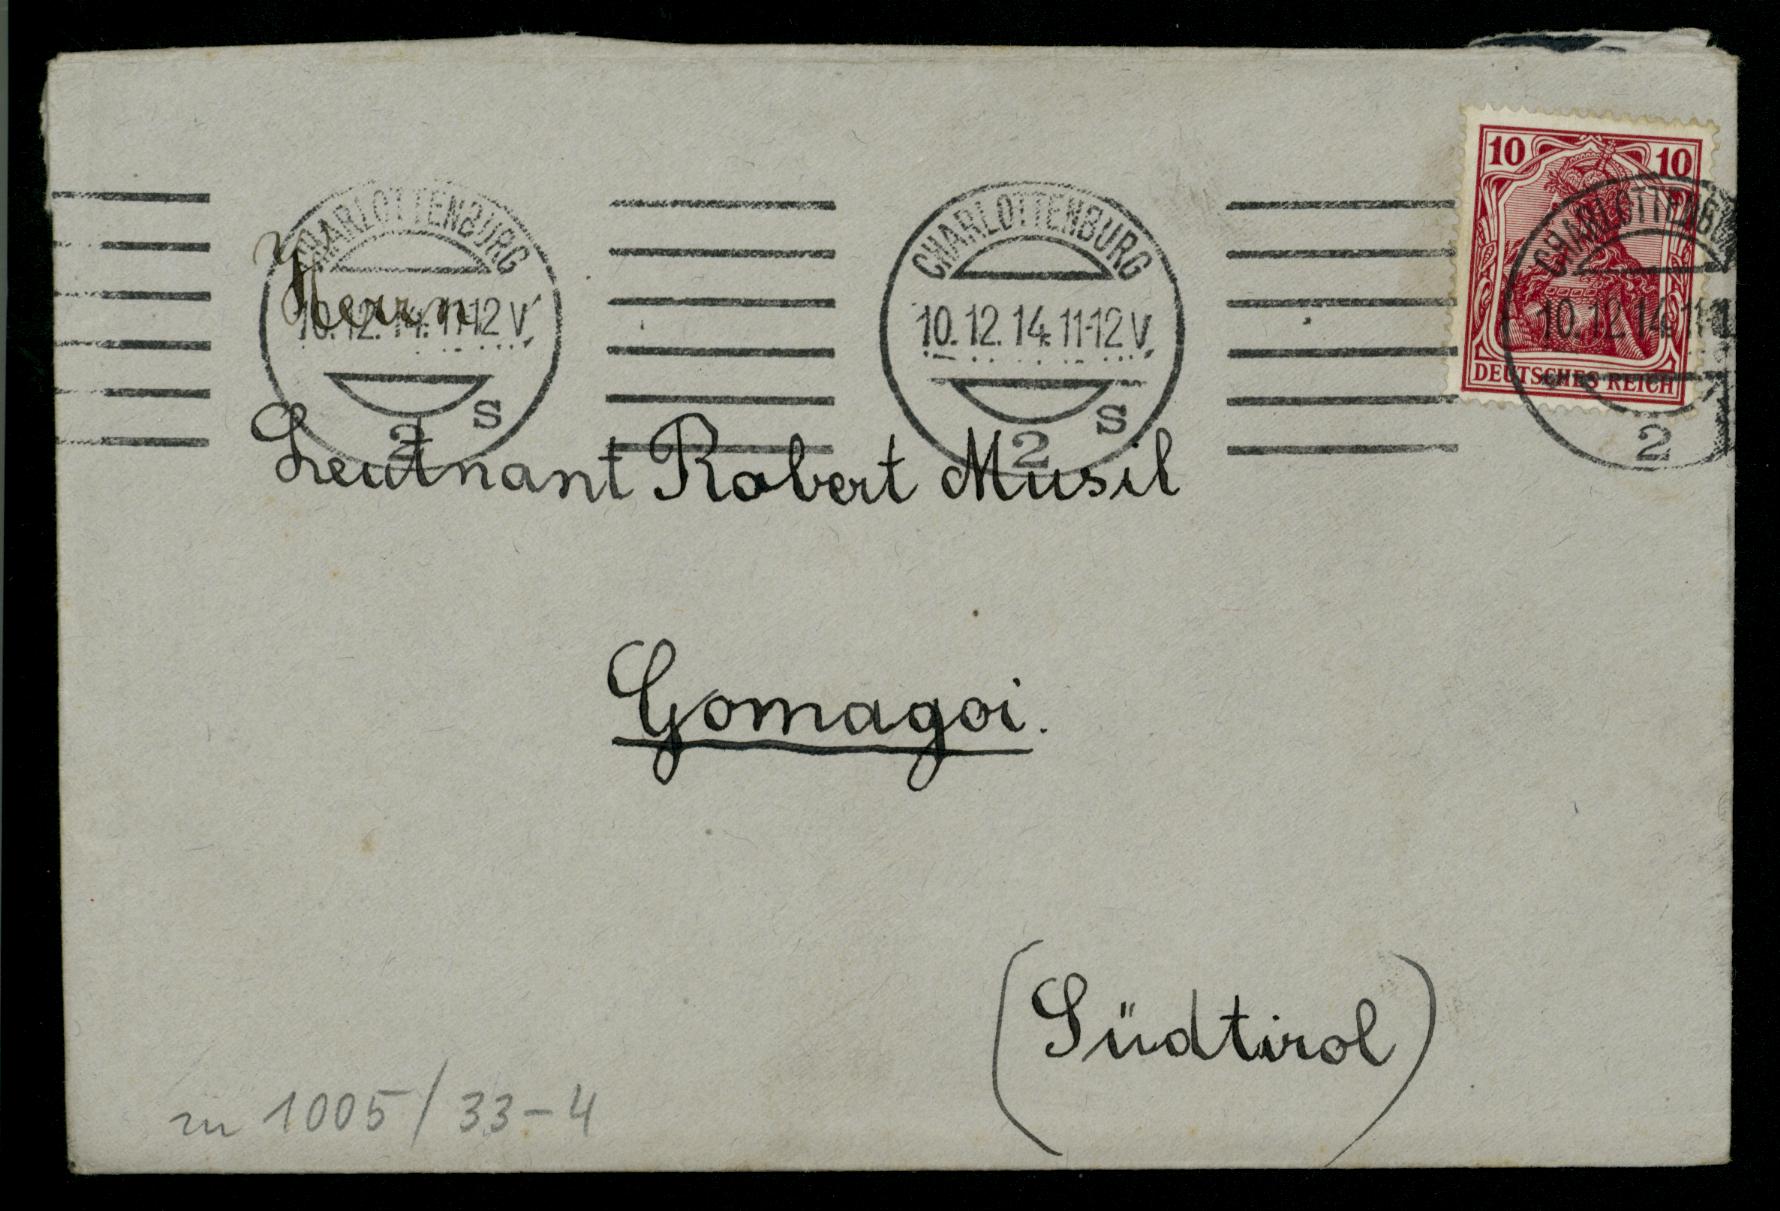 10 10
DEUTSCHES REICH
CHARLOTTENBURG
10.12.14.11-12V.
2 S
CHARLOTTENBURG
10.12.14.11-12V.
2 S
CHARLOTTENBU
10.12.14.11-1
2
Herrn
Leutnant Robert Musil
Gomagoi.
(Südtirol)
zu 1005/33-4